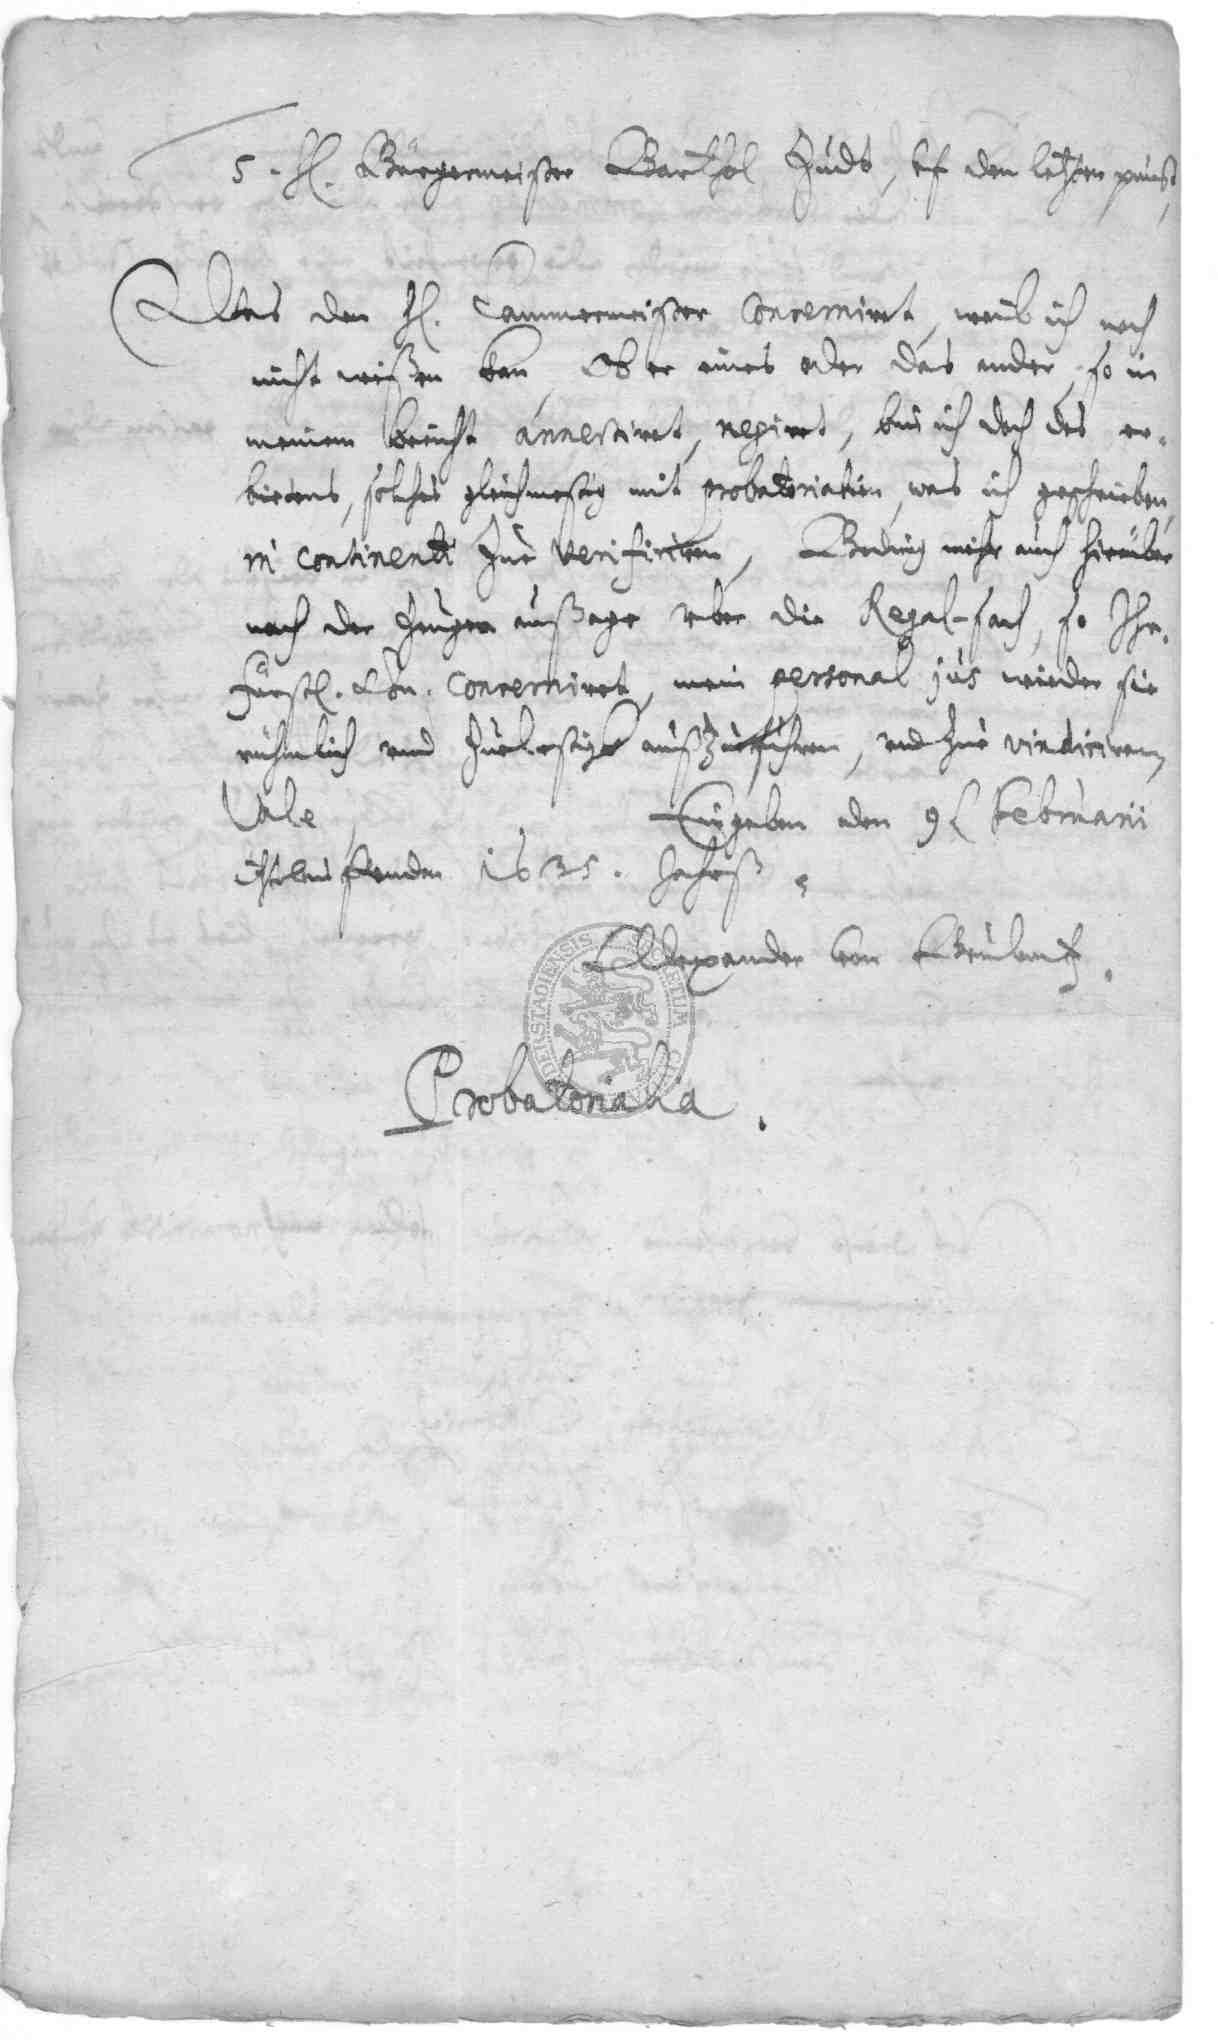 5. H. Bürgermeister Barthol Judt, vf den letzten punct,
Was den H. Cammermeister concerniret, weil ich noch
nicht wißen kan, Ob er eines oder das ander, so in
meinem bericht annectiret, negiret, bin ich doch des er-
bietens, solches gleichmeßig mit probatorialien, was ich geschrieben,
in continenti zue verificiren, Beding mihr auch hierüber
nach der Zeugen außage vber die Regal-sach, so Ihr.
Fürstl. Gn. concerniret, mein personal jus wieder sie
rühmlich vnd zueleßigk außzuführen, vnd zue vindiciren,
Vale, Eingeben den 9t Februarii
itzlauffenden 1635. Jahrß.
Allexander von Beulwitz.
ARCHIVUM
Probatorialia.